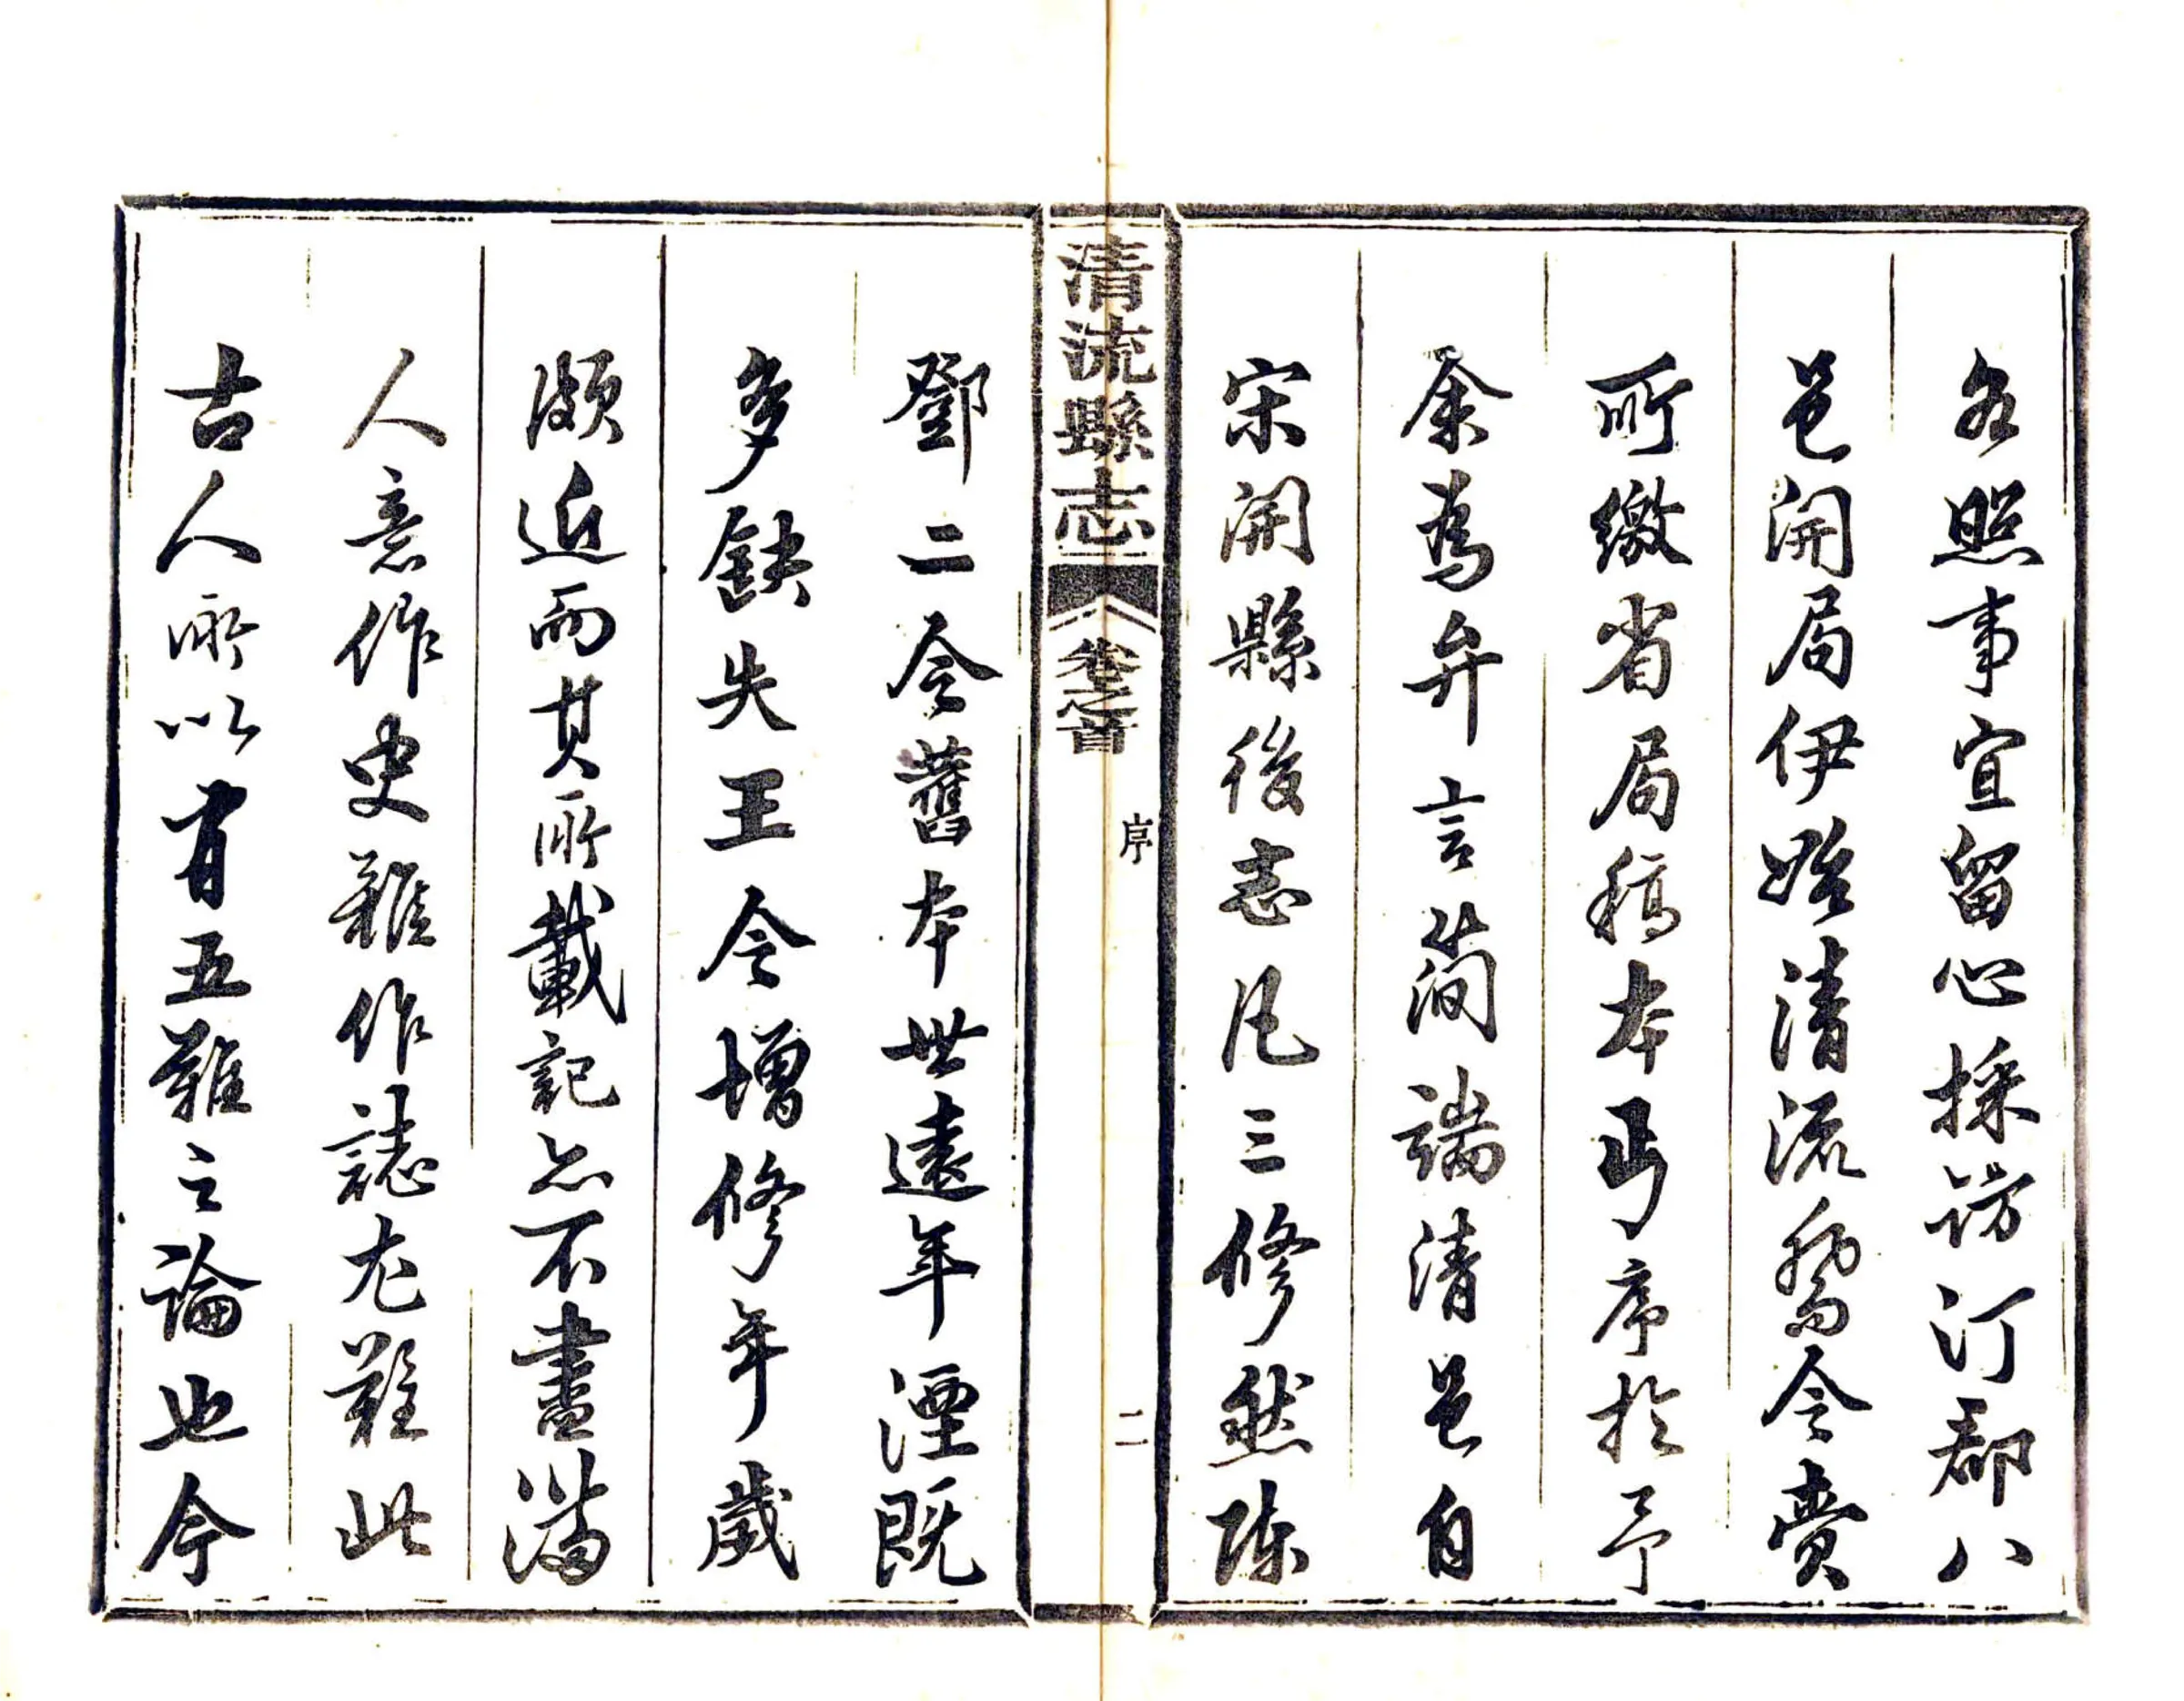 各照事宜留心採訪汀郡八
邑開局伊始清流喬令賫
所繳省局稿本丐序於予
余為弁言簡端清邑自
宋開縣後志凡三修然陳
清流縣志 卷之首 序 二
鄧二令舊本世遠年湮既
多缺失王令增修年歲
頗近而其所載記亦不盡滿
人意作史難作誌尤難此
古人所以有五難之論也今